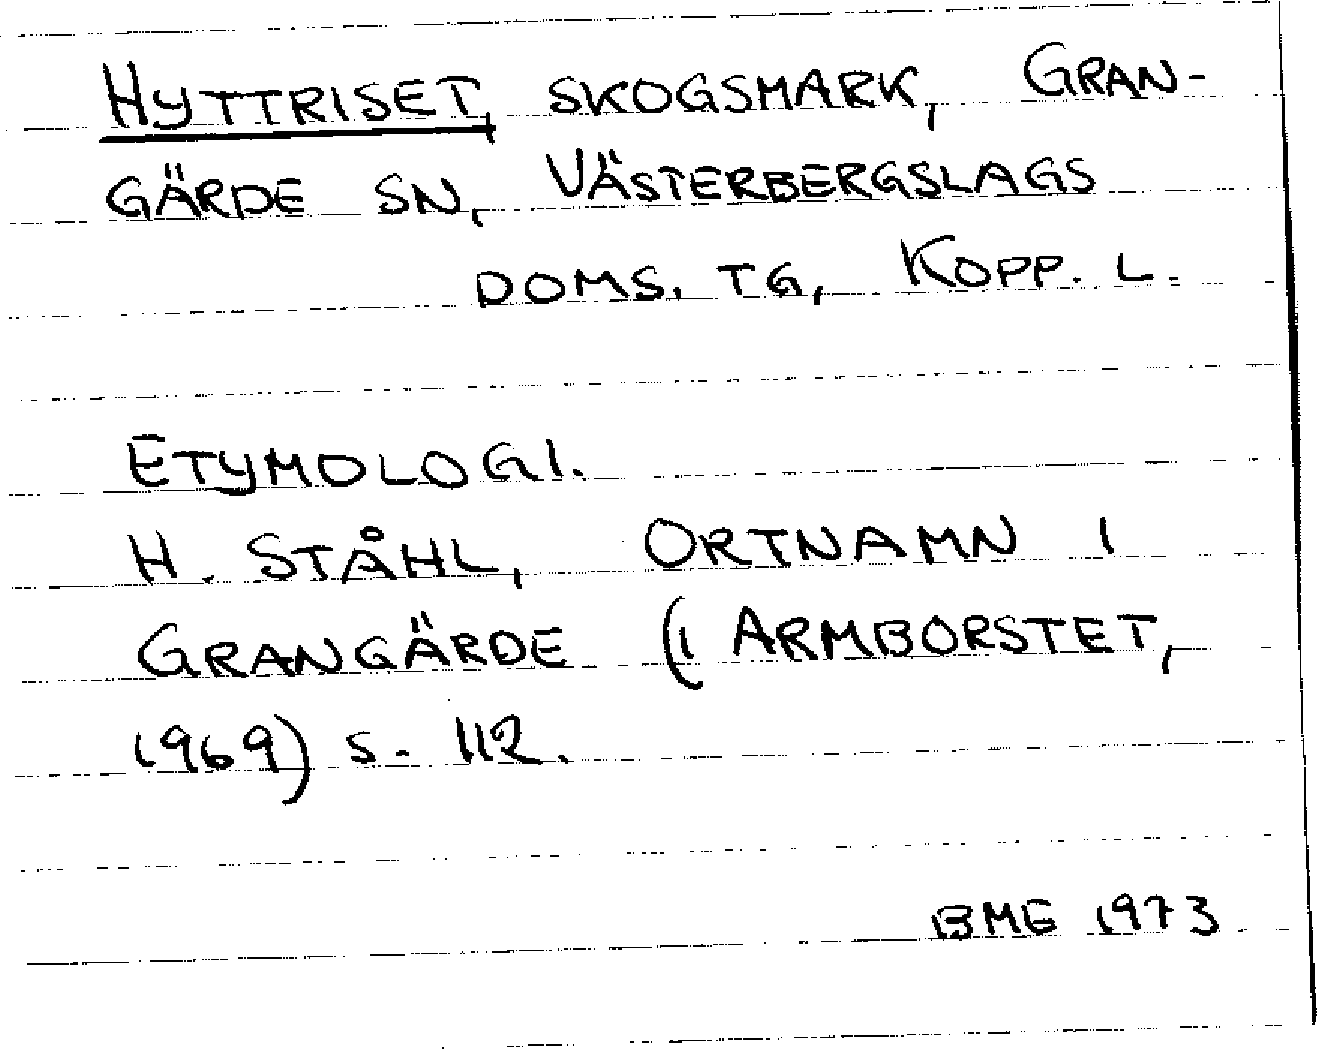 HYTTRISET, SKOGSMARK, GRAN-
GÄRDE SN, VÄSTERBERGSLAGS
DOMS. TG, KOPP. L.
ETYMOLOGI.
H. STÅHL, ORTNAMN I
GRANGÄRDE (I ARMBORSTET,
1969) S. 112.
BMG 1973